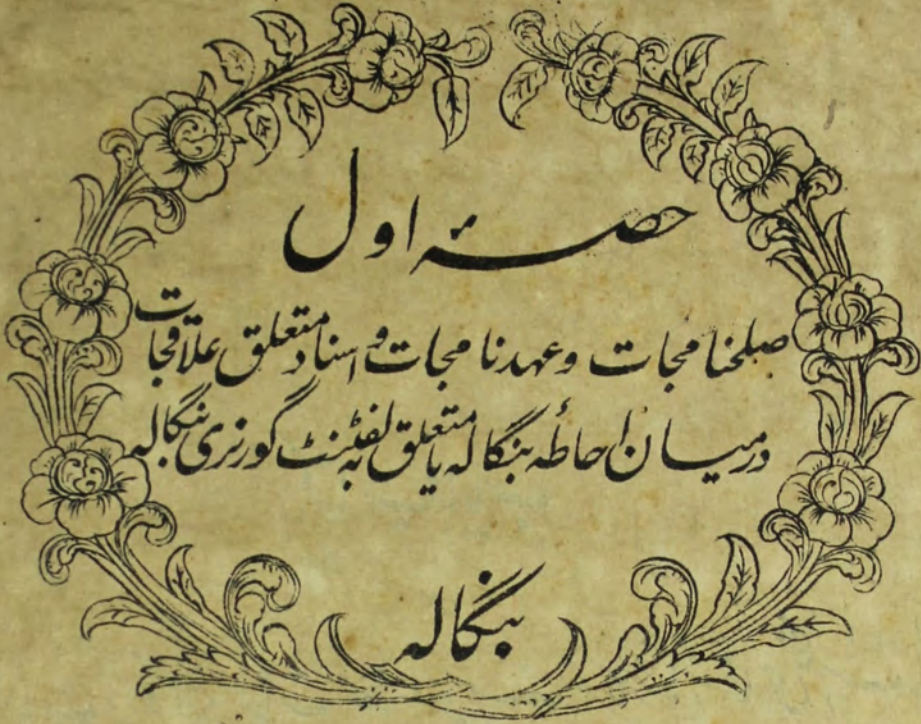 حصہٴ اول
صلحنامجات وعہدنامجات و اسناد متعلق علاقجات
درمیان احاطہٴ بنگالہ یا متعلق بہ لفٹنٹ گورنری بنگالہ
بنگالہ